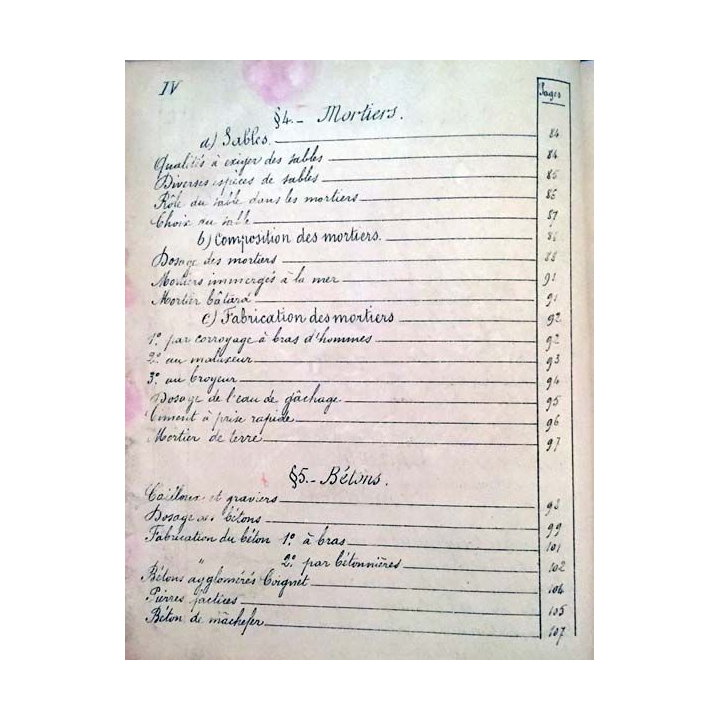 IV
Pages
§4.- Mortiers.
a) Sables. 84
Qualités à exiger des sables 84
Diverses espèces de sables 85
Rôle du sable dans les mortiers 86
Choix du sable 87
b) Composition des mortiers. 88
Dosage des mortiers 88
Mortiers immergés à la mer 91
Mortier bâtard 91
c) Fabrication des mortiers 92
1º par corroyage à bras d'hommes 92
2º au malaxeur 93
3º au broyeur 94
Dosage de l'eau de gâchage 95
Ciment à prise rapide 96
Mortier de terre 97
§5.- Bétons.
Cailloux et graviers 98
Dosage des bétons 99
Fabrication du béton 1º à bras 101
" 2º par bétonnières 102
Bétons agglomérés Coignet 104
Pierres factices 105
Béton de mâchefer 107